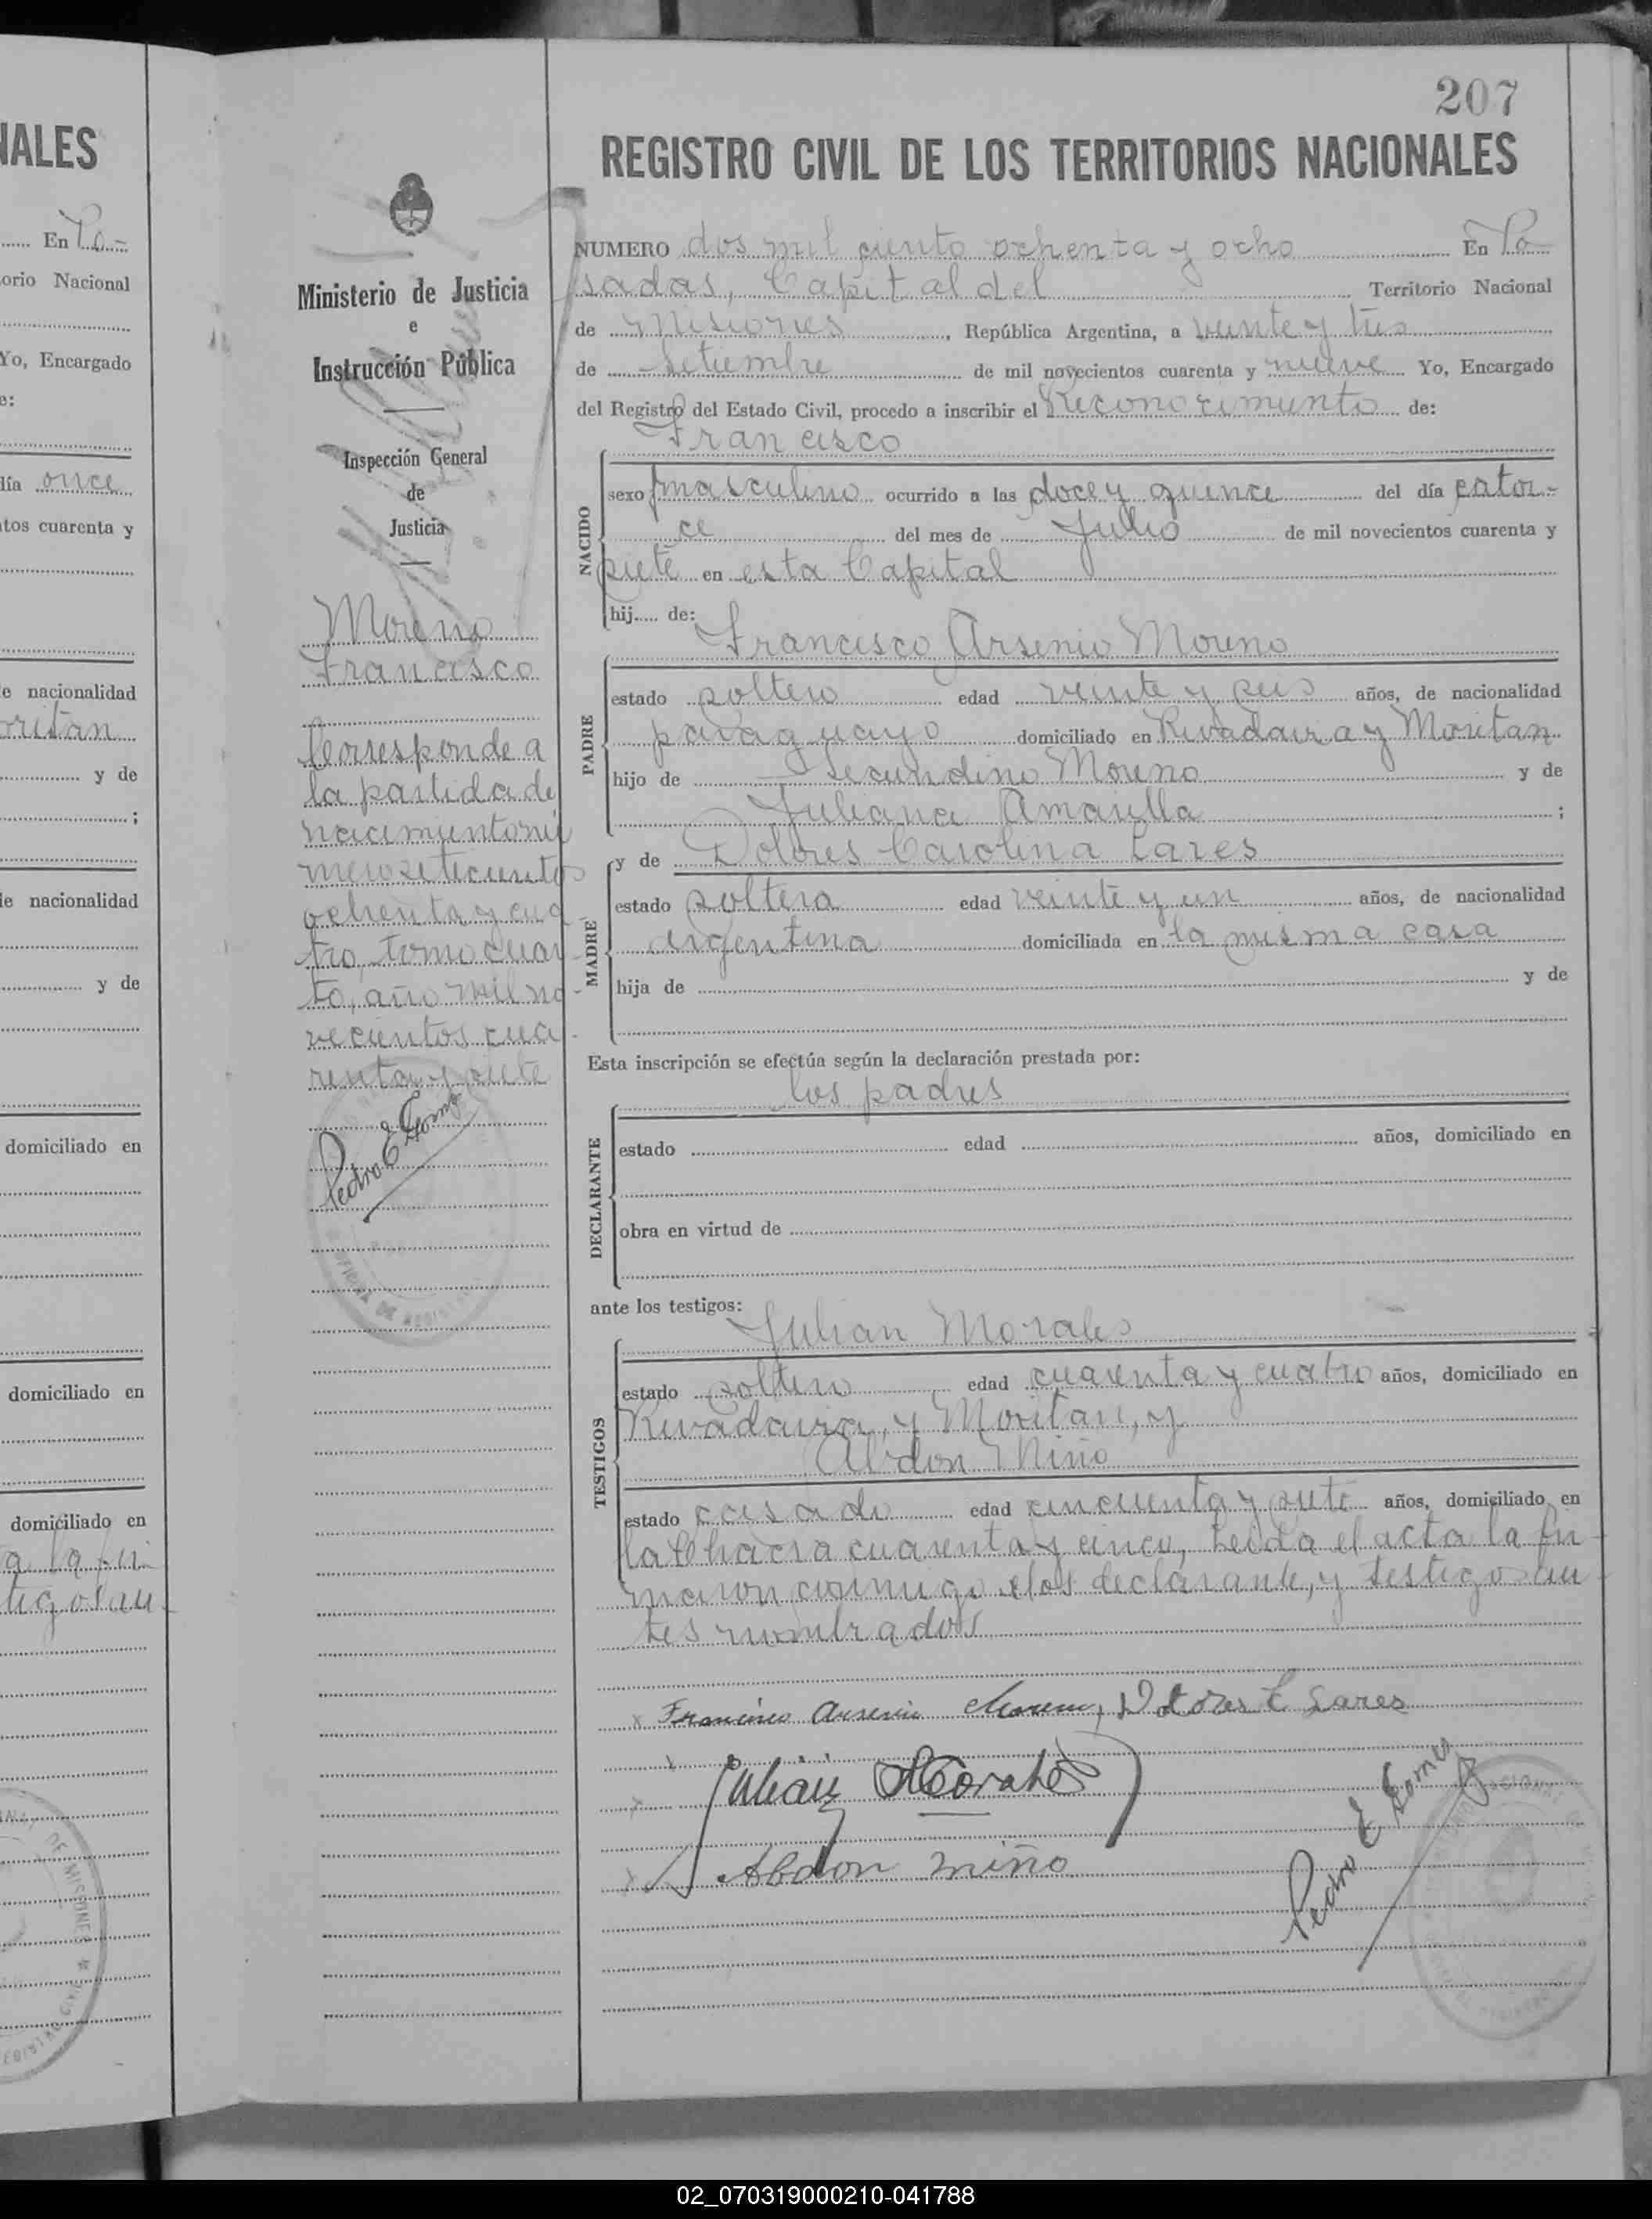 NALES
En Po-
orio Nacional
Yo, Encargado
e:
día once
tos cuarenta y
e nacionalidad
oritan
y de
;
de nacionalidad
y de
domiciliado en
domiciliado en
domiciliado en
a la fir
tigos an
207
REGISTRO CIVIL DE LOS TERRITORIOS NACIONALES
Ministerio de Justicia
e
Instrucción Pública
Inspección General
de
Justicia
Moreno
Francisco
Corresponde a
la partida de
nacimiento nú
mero setecientos
ochenta y cua
tro, tomo cuar-
to, año mil no-
vecientos cua-
renta y siete
Pedro E Gomez
NUMERO dos mil ciento ochenta y ocho En Po
sadas, Capital del Territorio Nacional
de Misiones, República Argentina, a veinte y tres
de Setiembre de mil novecientos cuarenta y nueve Yo, Encargado
del Registro del Estado Civil, procedo a inscribir el Reconocimiento de:
Francisco
NACIDO
sexo masculino ocurrido a las doce y quince del día cator-
ce del mes de Julio de mil novecientos cuarenta y
siete en esta Capital
hij.... de:
Francisco Arsenio Moreno
PADRE
estado soltero edad veinte y seis años, de nacionalidad
paraguayo domiciliado en Rivadavia y Moritan
hijo de Secundino Moreno y de
Juliana Amarilla ;
y de Dolores Carolina Lares
MADRE
estado soltera edad veinte y un años, de nacionalidad
argentina domiciliada en la misma casa
hija de y de
Esta inscripción se efectúa según la declaración prestada por:
los padres
DECLARANTE
estado edad años, domiciliado en
obra en virtud de
ante los testigos:
Julian Morales
TESTIGOS
estado soltero edad cuarenta y cuatro años, domiciliado en
Rivadavia, y Moritan, y
Abdon Miño
estado casado edad cincuenta y siete años, domiciliado en
la Chacra cuarenta y cinco, Leida el acta la fir-
maron conmigo los declarante, y testigos an-
tes nombrados
x Francisco Arsenio Moreno, Dolores C Lares
x Julian Morales
x Abdon miño
Pedro E Gomez
02_070319000210-041788